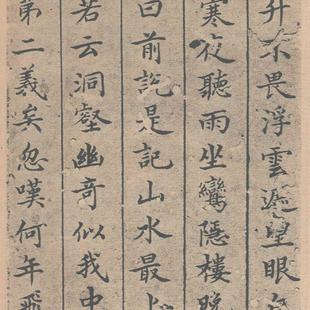 升不畏浮雲遮望眼自
寒夜聽雨坐鸞隱樓晚
曰前説是記山水最上
若云洞壑幽奇似我中
第二義矣忽嘆何年飛